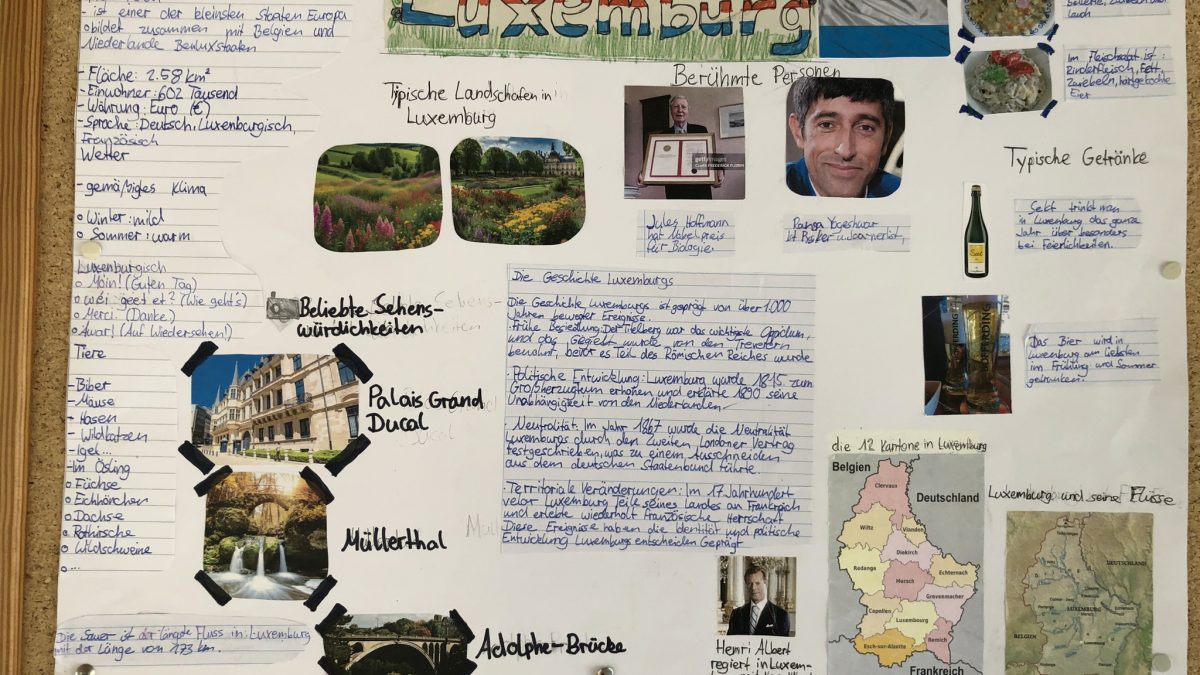 - ist einer der kleinsten Staaten Europa
o bildet zusammen mit Belgien und
Niederlande Beneluxstaaten
- Fläche: 2.58 km²
- Einwohner: 602 Tausend
- Währung: Euro (€)
- Sprache: Deutsch, Luxenburgisch,
Französisch
Wetter
- gemäßigtes Klima
o Winter: mild
o Sommer: warm
Luxenburgisch
o Moin! (Guten Tag)
o wéi geet et? (Wie geht's)
o Merci (Danke)
o Awar! (Auf Wiedersehen!)
Tiere
- Biber
- Mäuse
- Hasen
- Wildkatzen
- Igel...
- Im Ösling
o Füchse
o Eichhörnchen
o Dachse
o Rothirsche
o Wildschweine
o ...
Die Sauer ist der längste Fluss in Luxemburg
mit der Länge von 173 km.
Luxemburg
Typische Landschaften in
Luxemburg
Berühmte Personen
gettyimages
Credit: FREDERICK FLORIN
Jules Hoffmann
hat Nobelpreis
für Biologie.
Ranga Yogeshwar
ist
Beliebte Sehens-
würdichkeiten
Palais Grand
Ducal
Müllerthal
Adolphe-Brücke
Die Geschichte Luxemburgs
Die Geschichte Luxemburgs ist geprägt von über 1.000
Jahren bewegter Ereignisse.
Frühe Besiedlung: Der Titelberg war das wichtigste Oppidum,
und das Gebiet wurde von den Treverern
bewohnt, bevor es Teil des Römischen Reiches wurde
· Politische Entwicklung: Luxemburg wurde 1815 zum
Großherzogtum erhöhen und erklärte 1890 seine
Unabhängigkeit von den Niederlanden
· Neutralität: Im Jahr 1867 wurde die Neutralität
Luxemburgs durch den Zweiten Londoner Vertrag
festgeschrieben, was zu einem Ausscheiden
aus dem deutschen Staatenbund führte.
- Territoriale Veränderungen: Im 17 Jahrhundert
velor Luxemburg Teile seines Landes an Frankreich
und erlebte wiederholt französische Herrschaft
Diese Ereignisse haben die Identität und politische
Entwicklung Luxemburgs entscheiden Geprägt
Henri Albert
regiert in Luxem-
Im Fleischsalat ist:
Rinderfleisch, Fett,
Zwiebeln, hartgekochte
Eier
Typische Getränke
Sekt trinkt man
in Luxemburg das ganze
Jahr über besonders
bei Feierlichkeiten.
Das Bier wird in
Luxemburg am liebsten
im Frühling und Sommer
getrunken.
die 12 Kantone in Luxemburg
Belgien
Deutschland
Frankreich
Clervaux
Wiltz
Vianden
Diekirch
Redange
Echternach
Mersch
Grevenmacher
Capellen
Luxembourg
Esch-sur-Alzette
Remich
Luxemburg und seine Flüsse
DEUTSCHLAND
LUXEMBURG
BELGIEN